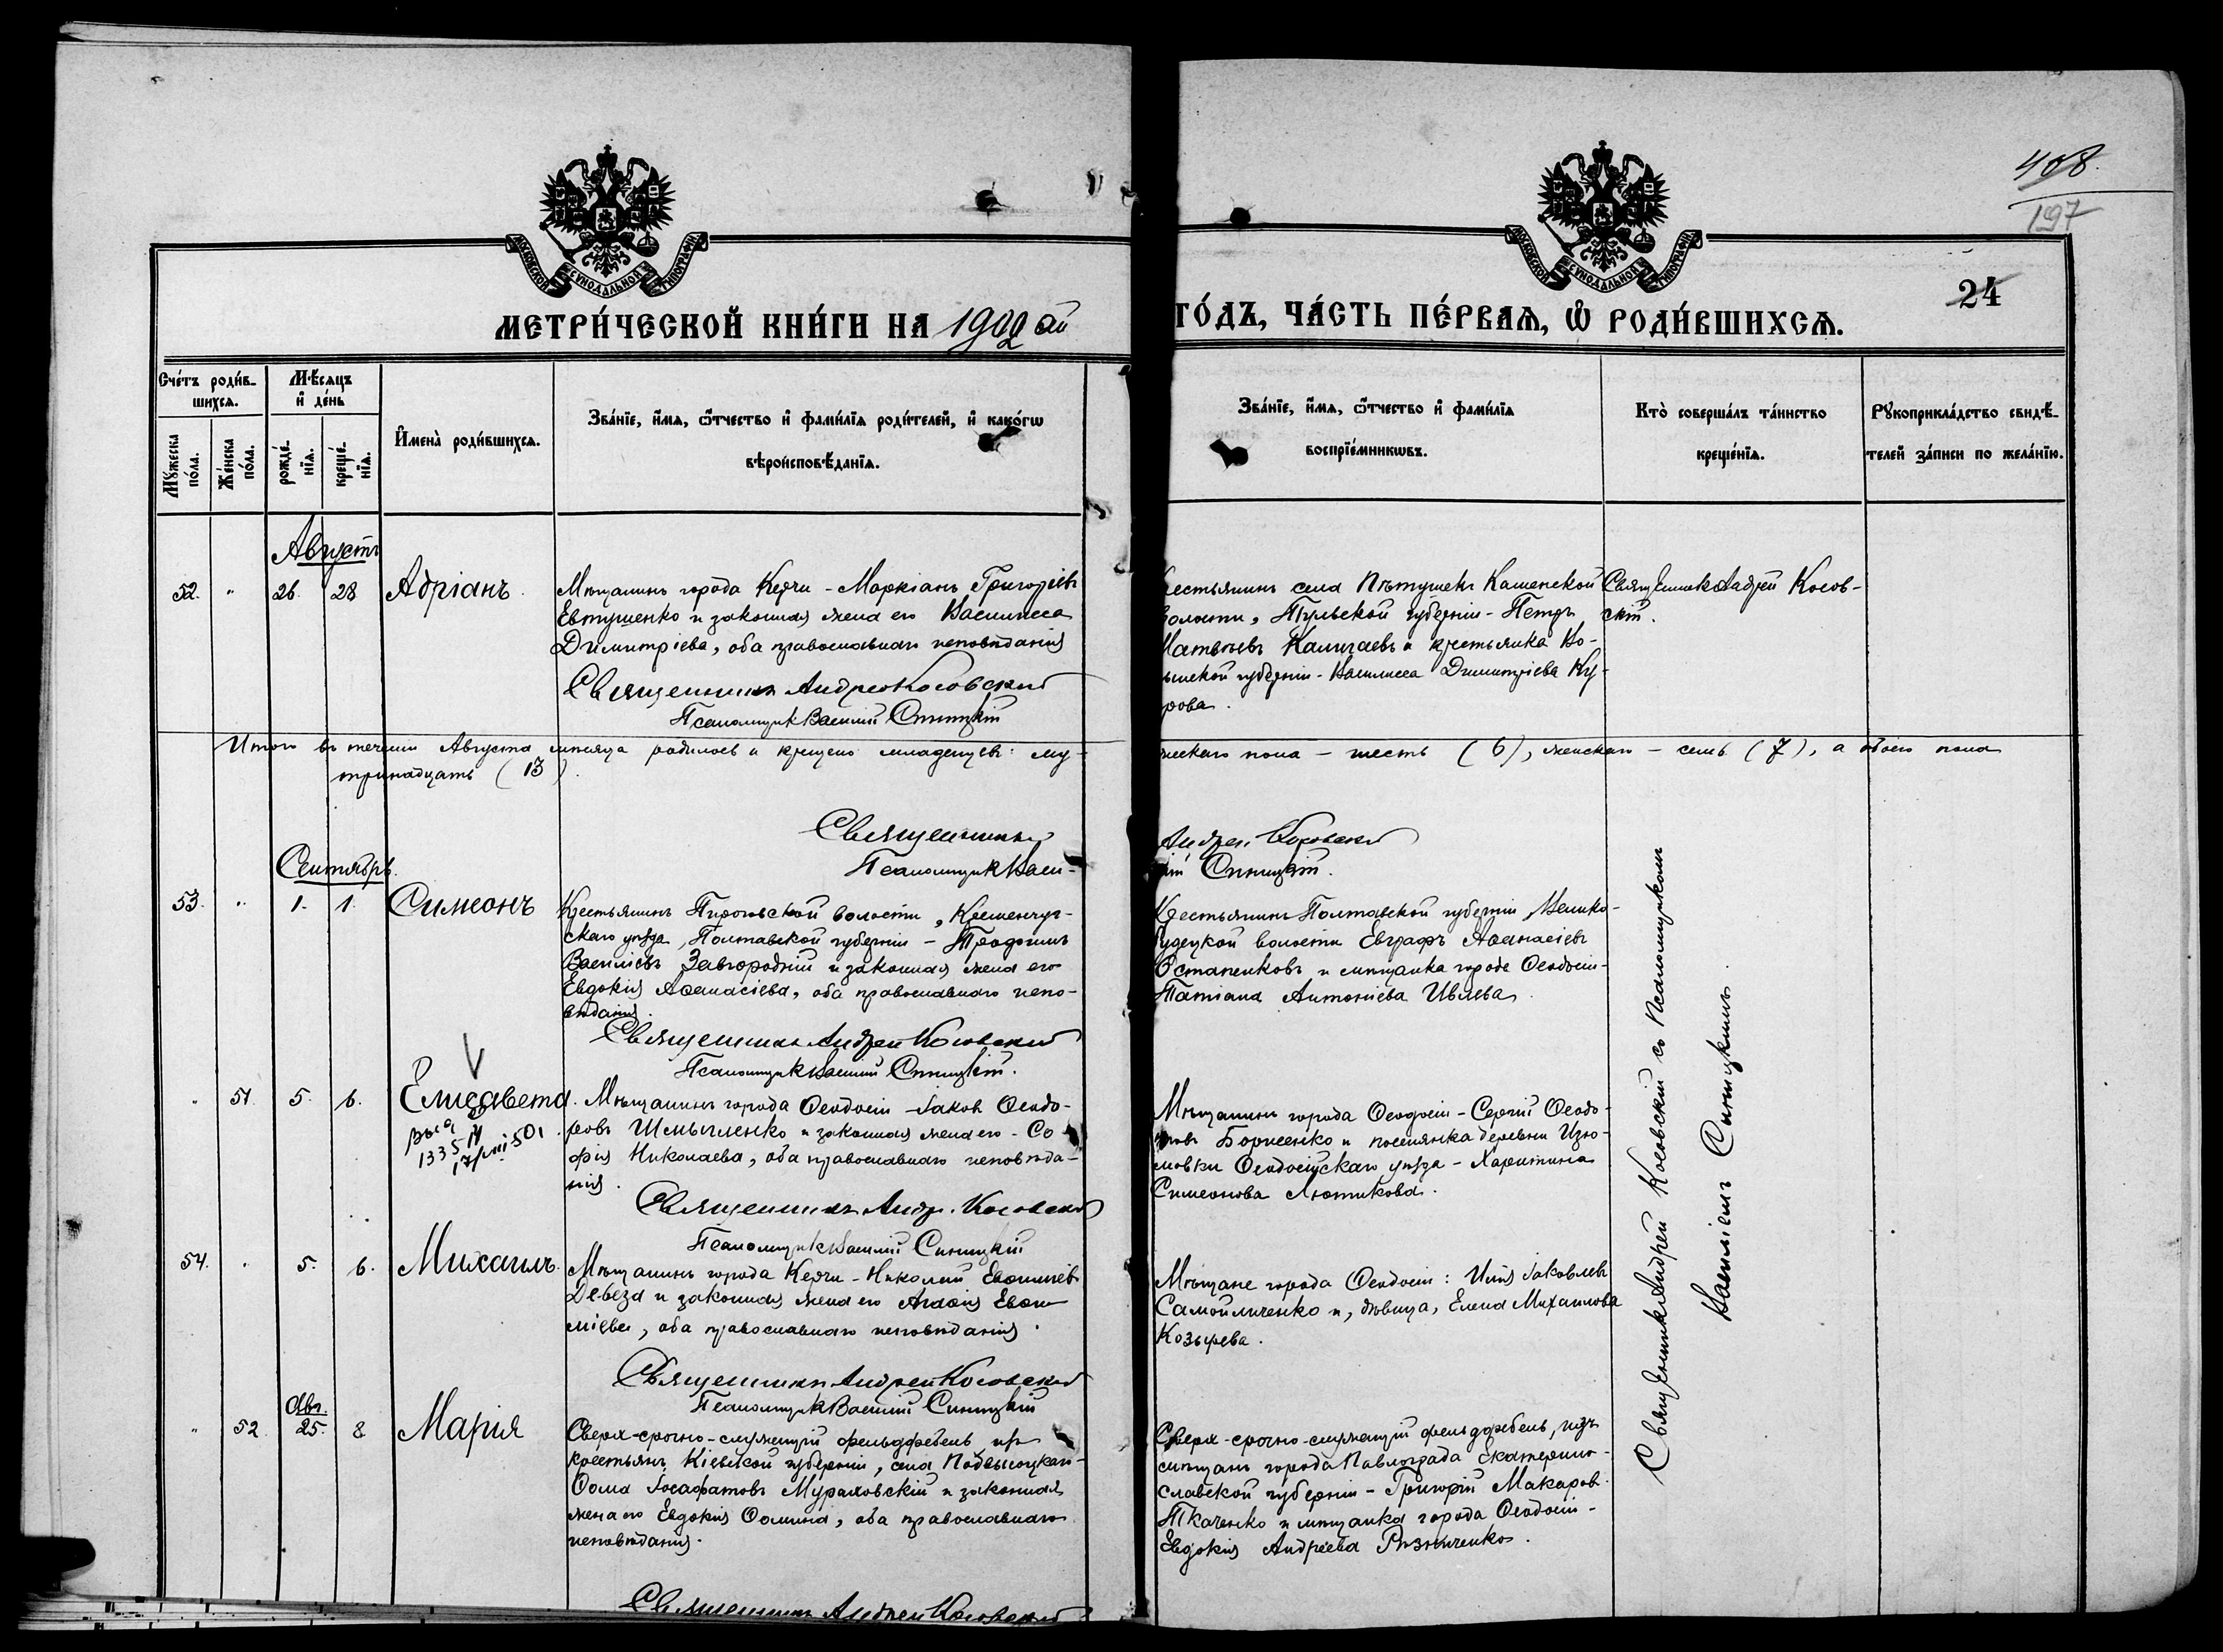 408.
197
МОСКОВСКОЙ СѴНОДАЛЬНОЙ ТИПОГРАФІИ
МОСКОВСКОЙ СѴНОДАЛЬНОЙ ТИПОГРАФІИ
24
МЕТРИ́ЧЕСКОЙ КНИ́ГИ НА 1902 ой
ГО́ДЪ, ЧА́СТЬ ПЕ́РВАѦ, Ѡ РОДИ́ВШИХСѦ.
Сче́тъ роди́в-
шихсѧ.
Мѣ́сѧцъ
и҆ де́нь
Мꙋ́жеска
по́ла.
Же́нска
по́ла.
рожде́-
нїѧ.
креще́-
нїѧ.
И҆мена̀ роди́вшихсѧ.
Зва́нїе, и҆́мѧ, ѻ҆́тчество и҆ фамі́лїѧ роди́телей, и҆ како́гѡ
вѣроисповѣ́данїѧ.
Зва́нїе, и҆́мѧ, ѻ҆́тчество и҆ фамі́лїѧ
воспрїе́мникѡвъ.
Кто̀ соверша́лъ та́инство
креще́нїѧ.
Рꙋкоприкла́дство свидѣ́-
телей за́писи по жела́нїю.
Августъ
52. " 26. 28 Адріанъ.
Мѣщанинъ города Керчи - Маркіанъ Григоріевъ
Евтушенко и законная жена его Василисса
Димитріева, оба православнаго исповѣданія
Священникъ Андрей Косовский
Псаломщикъ Василій Синицкій
естьянинъ села Пѣтушекъ Каменской
волости, Тульской губерніи - Петръ
Матвѣевъ
и крестьянка Во-
ынской губерніи - Василисса Димитріева Ку-
рова.
Священникъ Андрей Косов-
скій.
Итого въ теченіи Августа мѣсяца родилось и крещено младенцевъ: му-
жескаго пола - шесть (6), женскаго - семь (7), а обоего пола
тринадцать (13).
Священникъ
Андрей Косовский
Псаломщикъ Васи-
лій Синицкій.
Сентябрь.
53. " 1. 1. Симеонъ
Крестьянинъ
волости, Кременчуг-
скаго уѣзда, Полтавской губерніи - Трофимъ
Василіевъ Завгородній и законная жена его
Евдокія Аѳанасіева, оба православнаго испо-
вѣданія.
Священникъ Андрей Косовский
Псаломщикъ Василій Синицкій.
Крестьянинъ Полтавской губерніи Велико-
волости Евграфъ Аѳанасіевъ
Остапенковъ и мѣщанка города Ѳеодосіи -
Татіана Антоніева Ивлева.
" 51. 5. 6. Елисавета.
1335
Мѣщанинъ города Ѳеодосіи - Іаковъ Ѳеодо-
ровъ Шмыгленко и законная жена его - Со-
фія Николаева, оба православнаго исповѣда-
нія.
Священникъ Андр. Косовский
Псаломщикъ Василій Синицкій
Мѣщанинъ города Ѳеодосіи - Сергій Ѳеодо-
ровъ Борисенко и поселянка деревни Изю-
мовки Ѳеодосійскаго уѣзда - Харитина
Симеонова Лютикова.
54. " 5. 6. Михаилъ.
Мѣщанинъ города Керчи - Николай Евѳиміевъ
Девеза и законная жена его Агаѳія Евѳи-
міева, оба православнаго исповѣданія.
Священникъ Андрей Косовский
Псаломщикъ Василій Синицкій
Мѣщане города Ѳеодосіи: Илія Іаковлевъ
Самойличенко и, дѣвица, Елена Михаилова
Козырева.
" 52. Авг. 25. 8 Марія
Сверх-срочно-служащій фельдфебель изъ
крестьянъ Кіевской губерніи, села Подвысоцкаго -
Ѳома Іосафатовъ Мураховскій и законная
жена его Евдокія Ѳомина, оба православнаго
исповѣданія.
Священникъ Андрей Косовский
Сверх-срочно-служащій фельдфебель, изъ
мѣщанъ города Павлограда Екатерино-
славской губерніи - Григорій Макаровъ
Ткаченко и мѣщанка города Ѳеодосіи -
Евдокія Андреева Рѣзниченко.
Священникъ Андрей Косовскій со Псаломщикомъ
Василіемъ Синицкимъ.